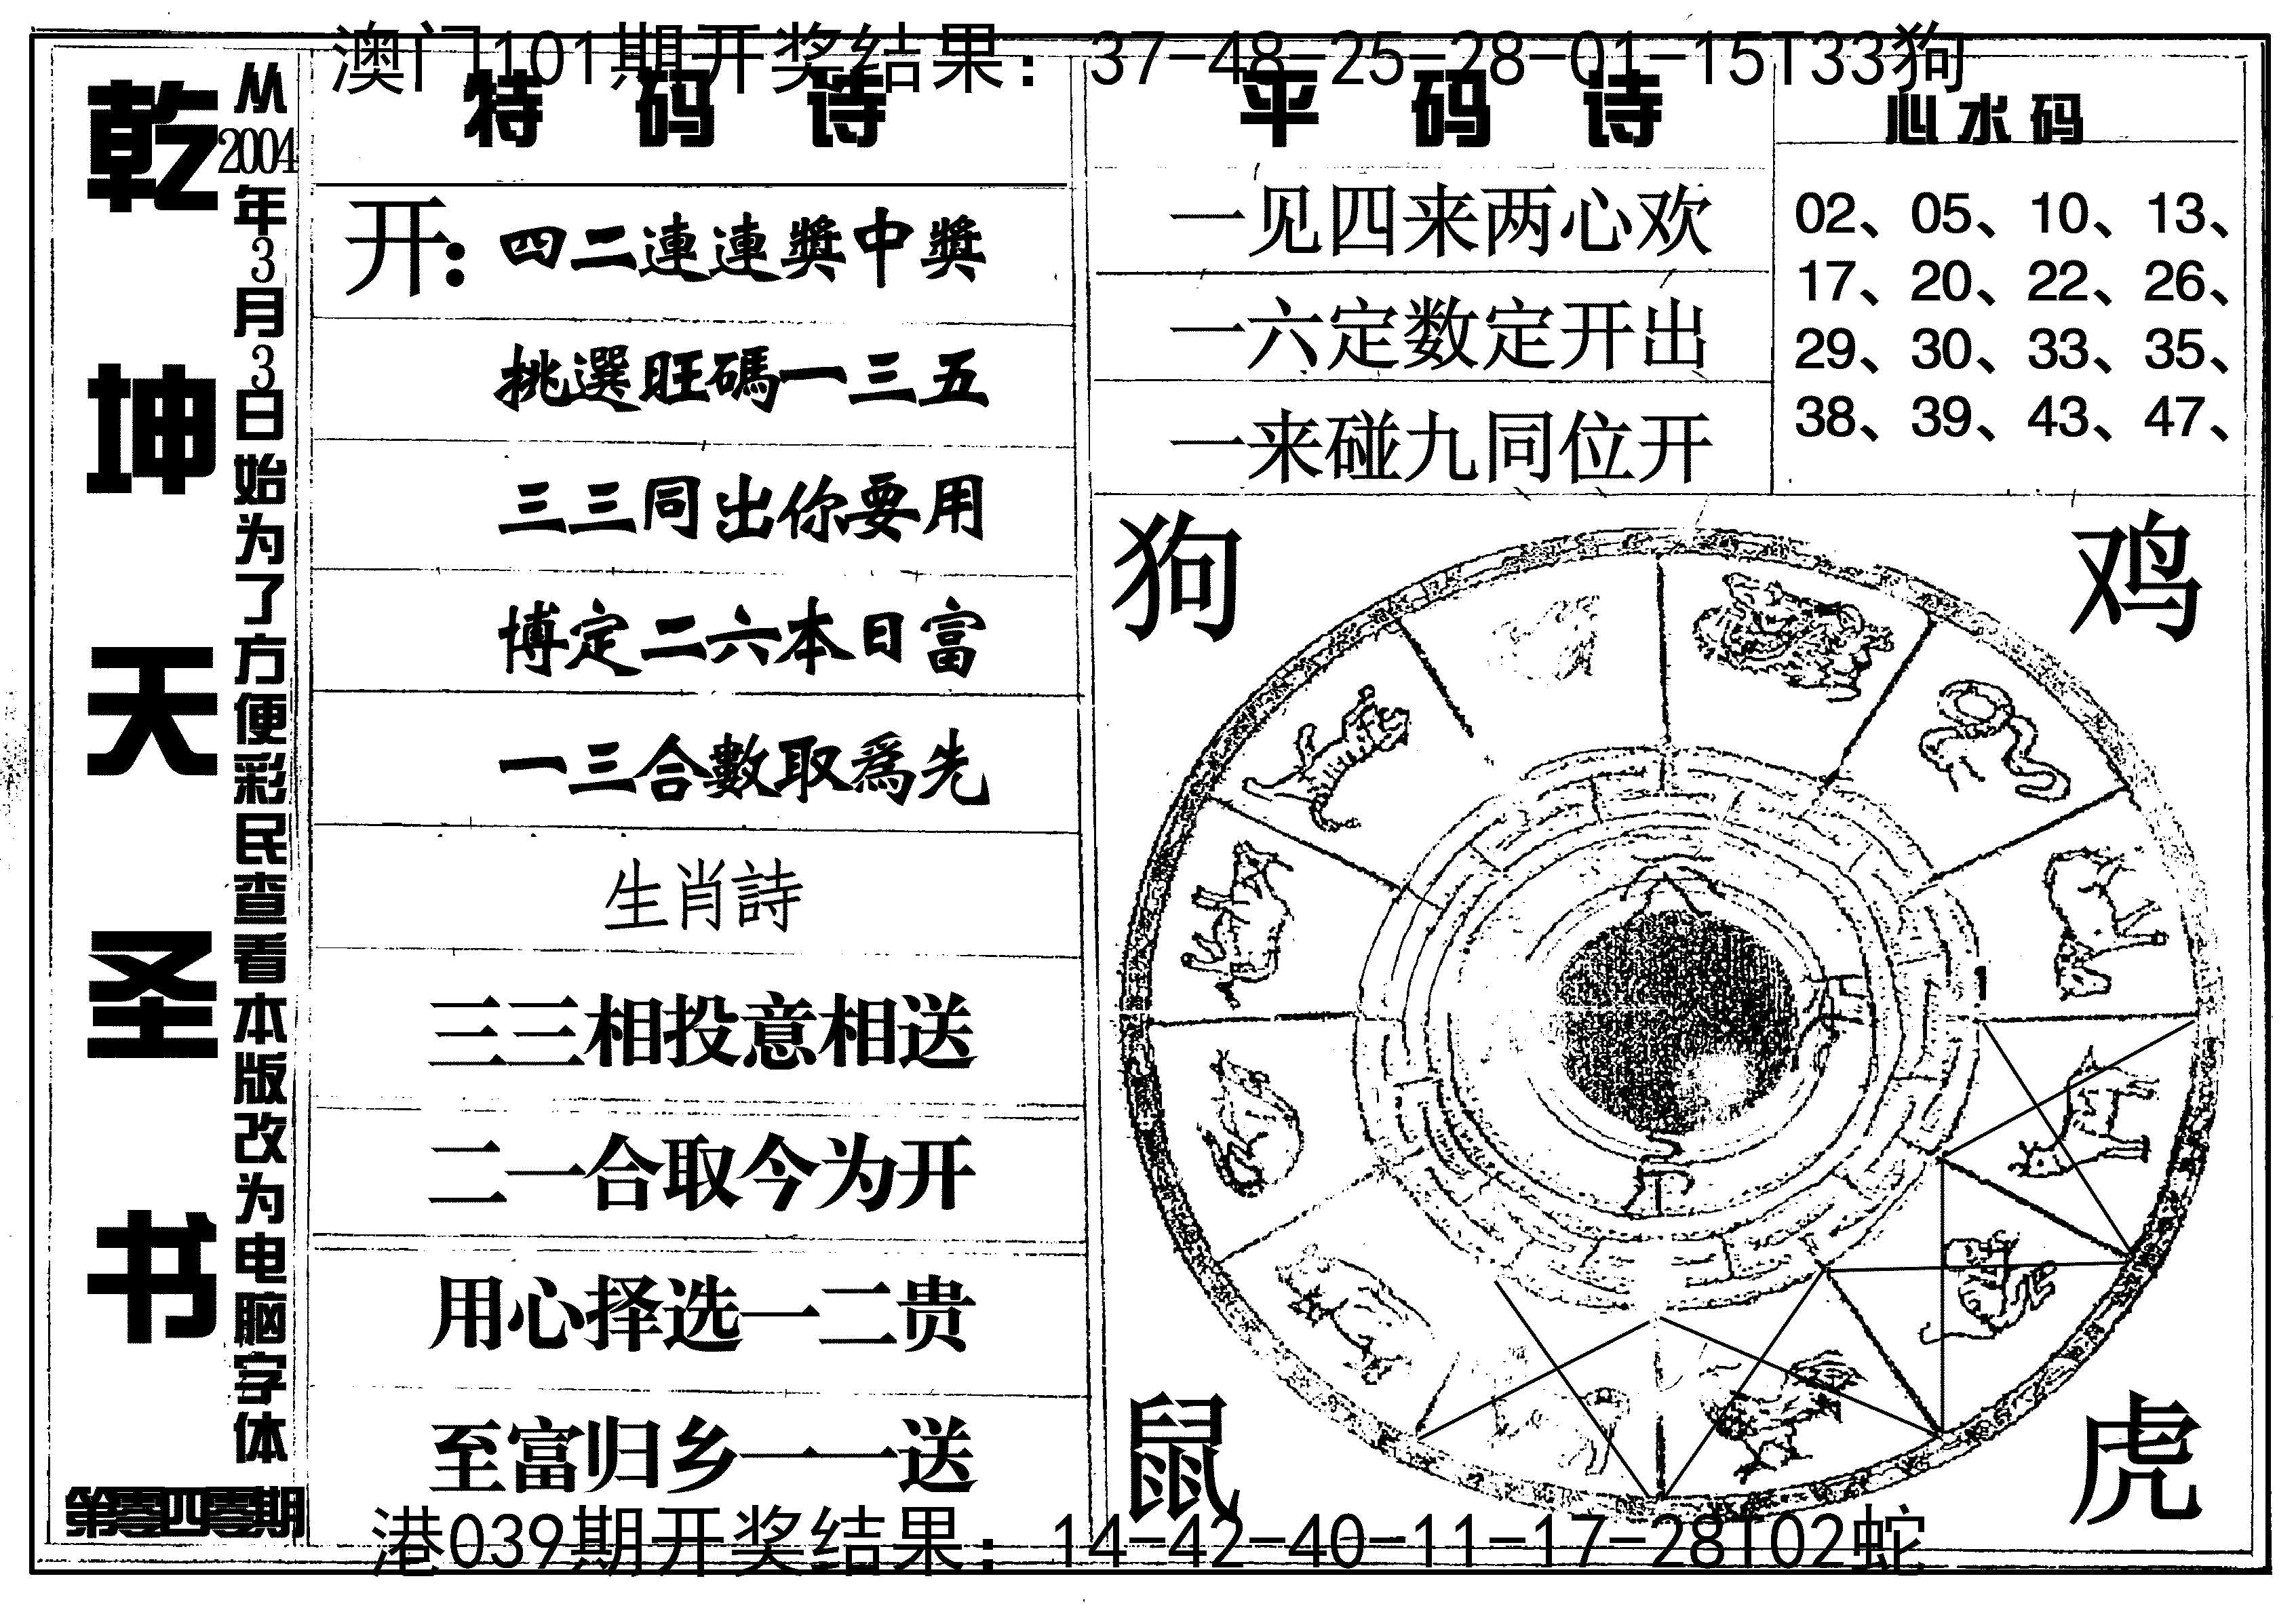 澳门101期开奖结果：37-48-25-28-01-15T33狗
乾坤天圣书
从2004年3月3日始为了方便彩民查看本版改为电脑字体
第零四零期
特码诗
开：四二連連獎中獎
挑選旺碼一三五
三三同出你要用
博定二六本日富
一三合數取爲先
生肖詩
三三相投意相送
二一合取今为开
用心择选一二贵
至富归乡一一送
平码诗
一见四来两心欢
一六定数定开出
一来碰九同位开
心水码
02、05、10、13、
17、20、22、26、
29、30、33、35、
38、39、43、47、
狗
鸡
鼠
虎
港039期开奖结果：14-42-40-11-17-28T02蛇